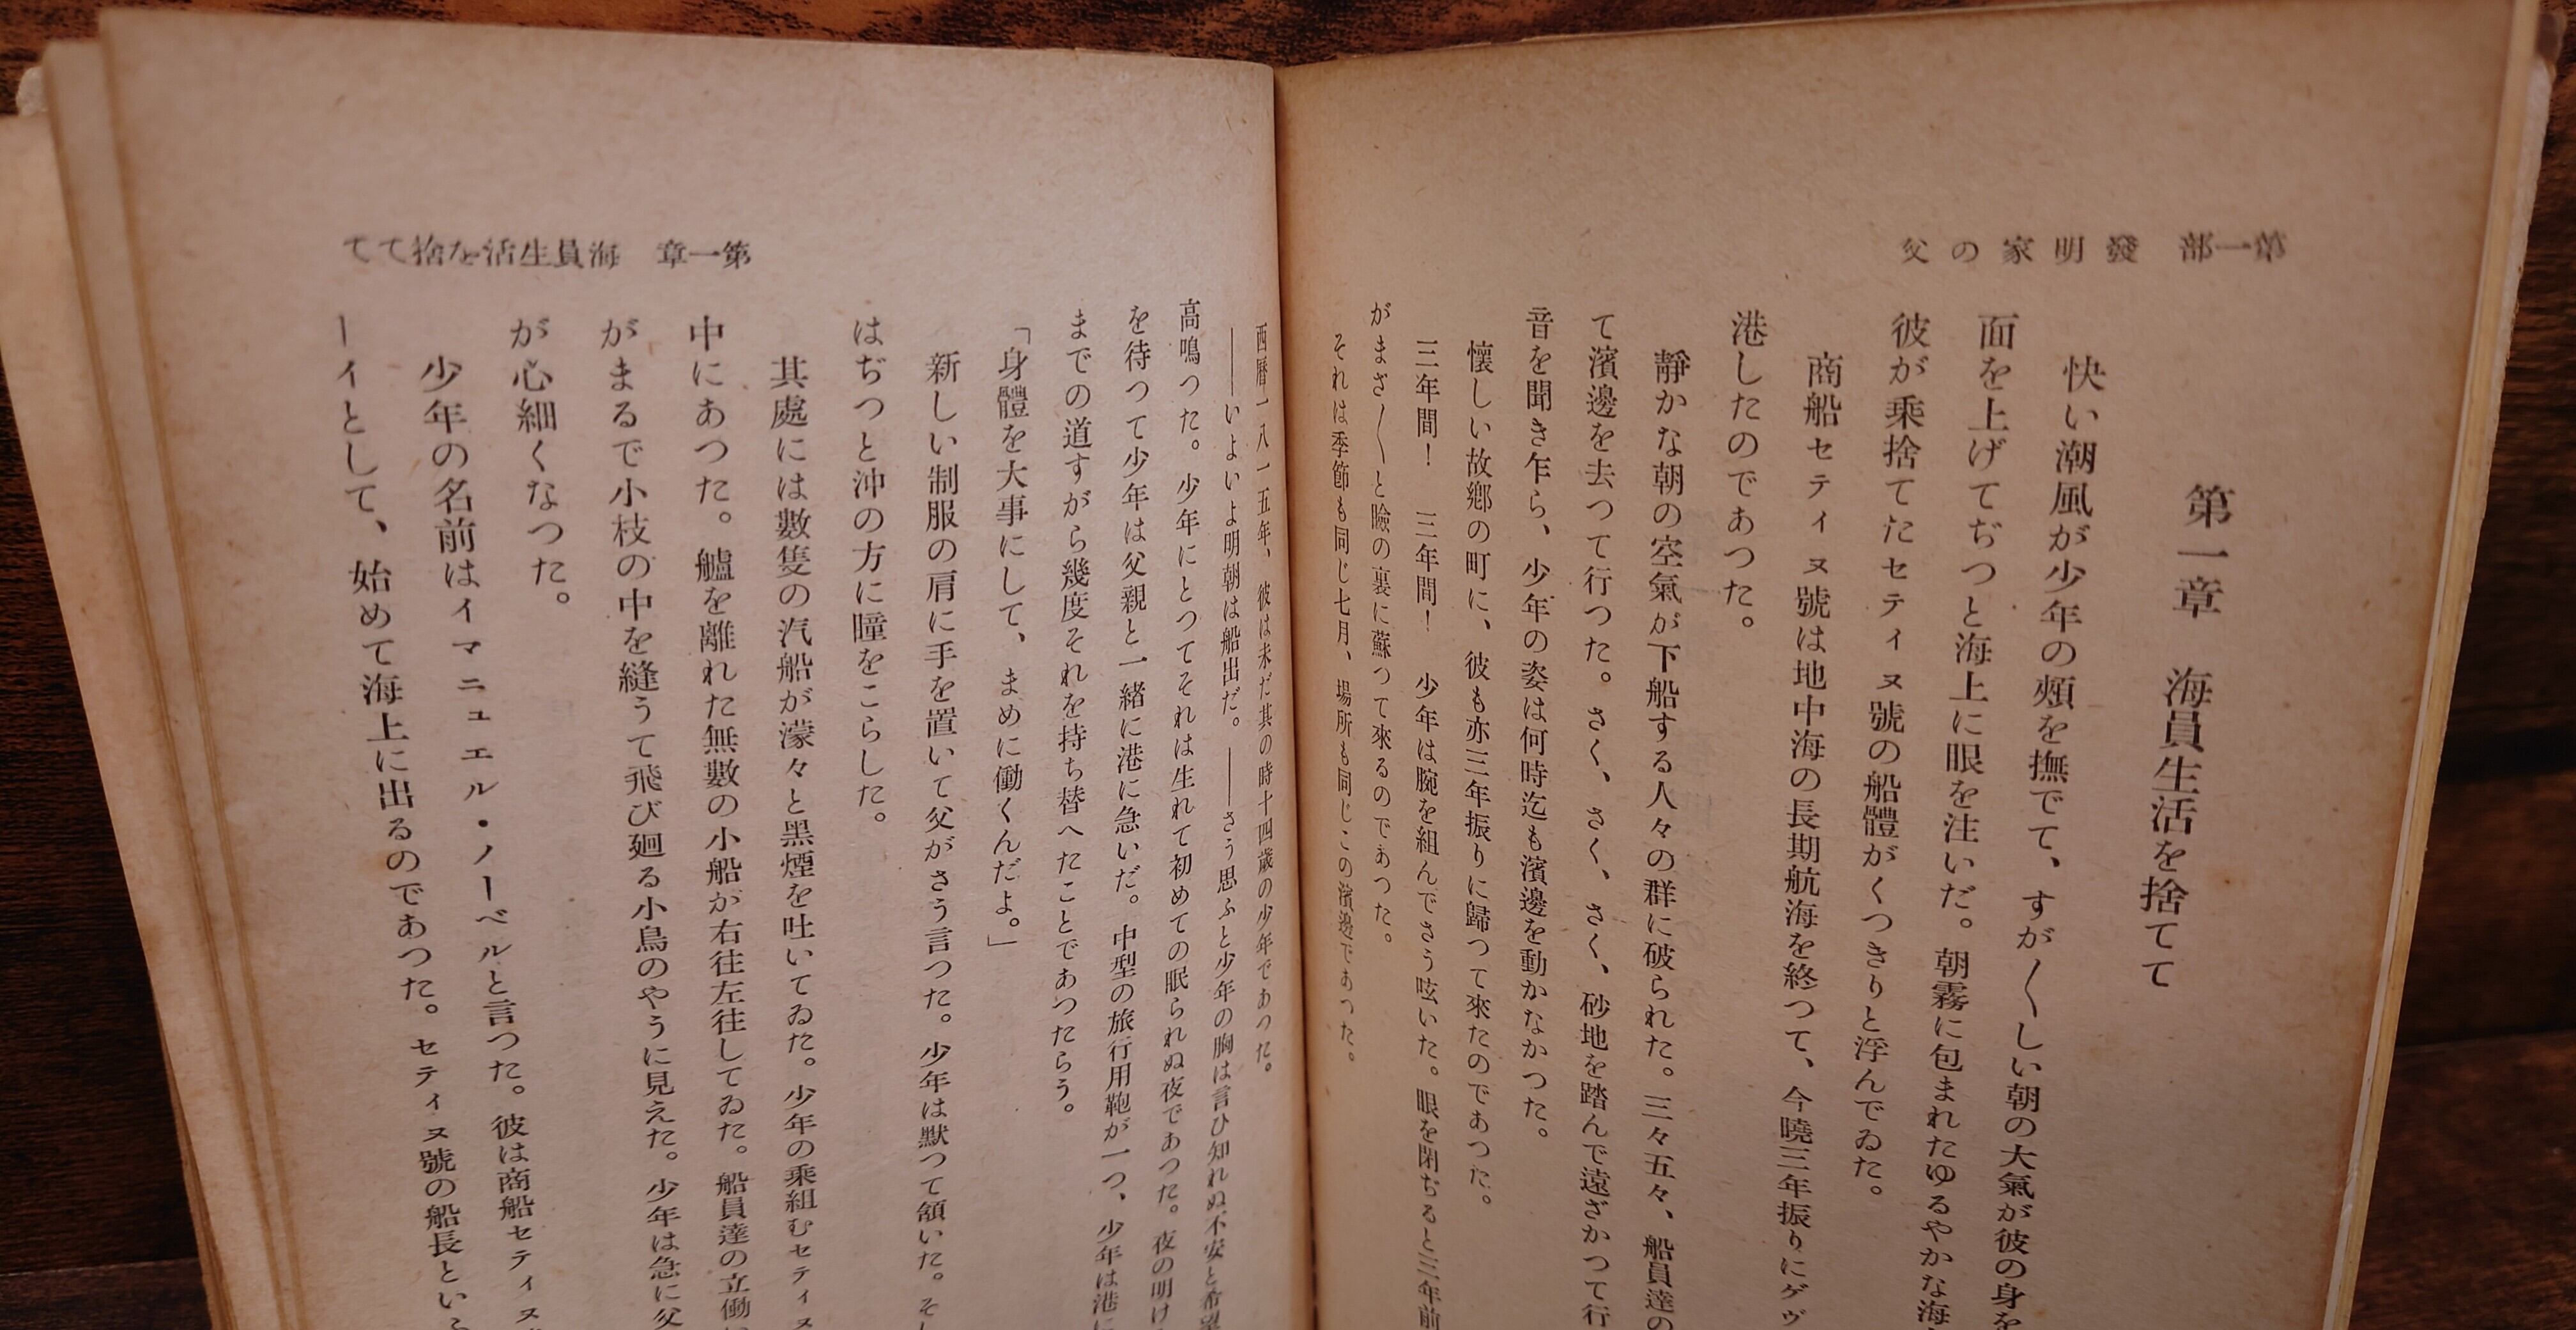 第一部　發明家の父
第一章　海員生活を捨てて
快い潮風が少年の頰を撫でて、すが〱しい朝の大氣が彼の身を
面を上げてぢつと海上に眼を注いだ。朝霧に包まれたゆるやかな海
彼が乗捨てたセティヌ號の船體がくつきりと浮んでゐた。
商船セティヌ號は地中海の長期航海を終つて、今曉三年振りにゲヴ
港したのであつた。
靜かな朝の空氣が下船する人々の群に破られた。三々五々、船員達の
て濱邊を去つて行つた。さく、さく、さく、砂地を踏んで遠ざかつて行
音を聞き乍ら、少年の姿は何時迄も濱邊を動かなかつた。
懷しい故鄕の町に、彼も亦三年振りに歸つて來たのであつた。
三年間！　三年間！　少年は腕を組んでさう呟いた。眼を閉ぢると三年前
がまざ〱と瞼の裏に蘇つて來るのであつた。
それは季節も同じ七月、場所も同じこの濱邊であつた。
第一章　海員生活を捨てて
西曆一八一五年、彼は未だ其の時十四歲の少年であつた。
――いよいよ明朝は船出だ。――さう思ふと少年の胸は言ひ知れぬ不安と希望
高鳴つた。少年にとつてそれは生れて初めての眠られぬ夜であつた。夜の明け
を待つて少年は父親と一緒に港に急いだ。中型の旅行用鞄が一つ、少年は港に
までの道すがら幾度それを持ち替へたことであつたらう。
「身體を大事にして、まめに働くんだよ。」
新しい制服の肩に手を置いて父がさう言つた。少年は默つて頷いた。そし
はぢつと沖の方に瞳をこらした。
其處には數隻の汽船が濛々と黑煙を吐いてゐた。少年の乘組むセティヌ
中にあつた。艫を離れた無數の小船が右往左往してゐた。船員達の立働
がまるで小枝の中を縫うて飛び廻る小鳥のやうに見えた。少年は急に父
が心細くなつた。
少年の名前はイマニュエル・ノーベルと言つた。彼は商船セティヌ
ーイとして、始めて海上に出るのであつた。セティヌ號の船長とい